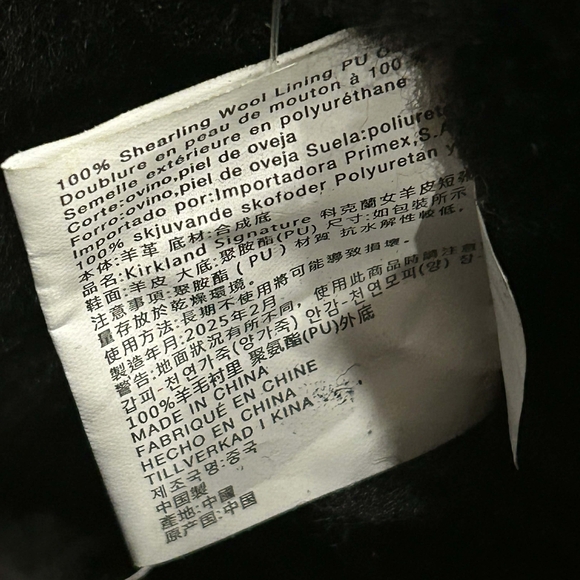 100% Shearling Wool Lining PU
Doublure en peau de mouton à 100
Semelle extérieure en polyuréthane
Corte:ovino,piel de oveja Suela:poliuret
Forro:ovino,piel de oveja
Importado por:Importadora Primex,S.A
100% skjuvande skofoder Polyuretan y
本体:羊革 底材:合成底
品名:Kirkland Signature 科克蘭女羊皮短
鞋面:羊皮 大底:聚胺酯(PU) 尺寸:如包裝所示
注意事項:聚胺酯(PU) 材質 抗水解性較低,
量存放於乾燥環境。
使用方法:長期不使用將可能導致損壞。
製造年月:2025年2月
警告:地面狀況有所不同, 使用此商品時請注意
갑피-천연가죽(양가죽) 안감-천연모피(양) 창-
100%羊毛衬里 聚氨酯(PU)外底
MADE IN CHINA
FABRIQUÉ EN CHINE
HECHO EN CHINA
TILLVERKAD I KINA
제조국명:중국
中国製
產地:中國
原产国:中国